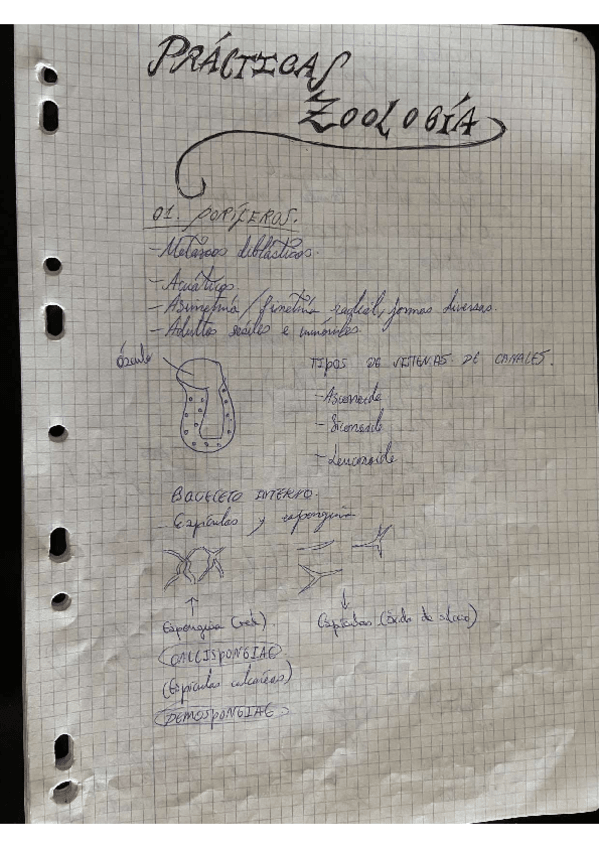 PRÁCTICAS
ZOOLOGÍA
01. PORÍFEROS.
- Metazoos diblásticos.
- Acuáticos.
- Asimetría / simetría radial, formas diversas.
- Adultos sésiles e inmóviles.
ósculo
TIPOS DE SISTEMAS DE CANALES.
- Asconoide
- Siconoide
- Leuconoide
ESQUELETO INTERNO.
- Espículas y espongina
Espongina (red)
Espículas (óxido de silicio)
CALCISPONGIAE
(Espículas calcáreas)
DEMOSPONGIAE